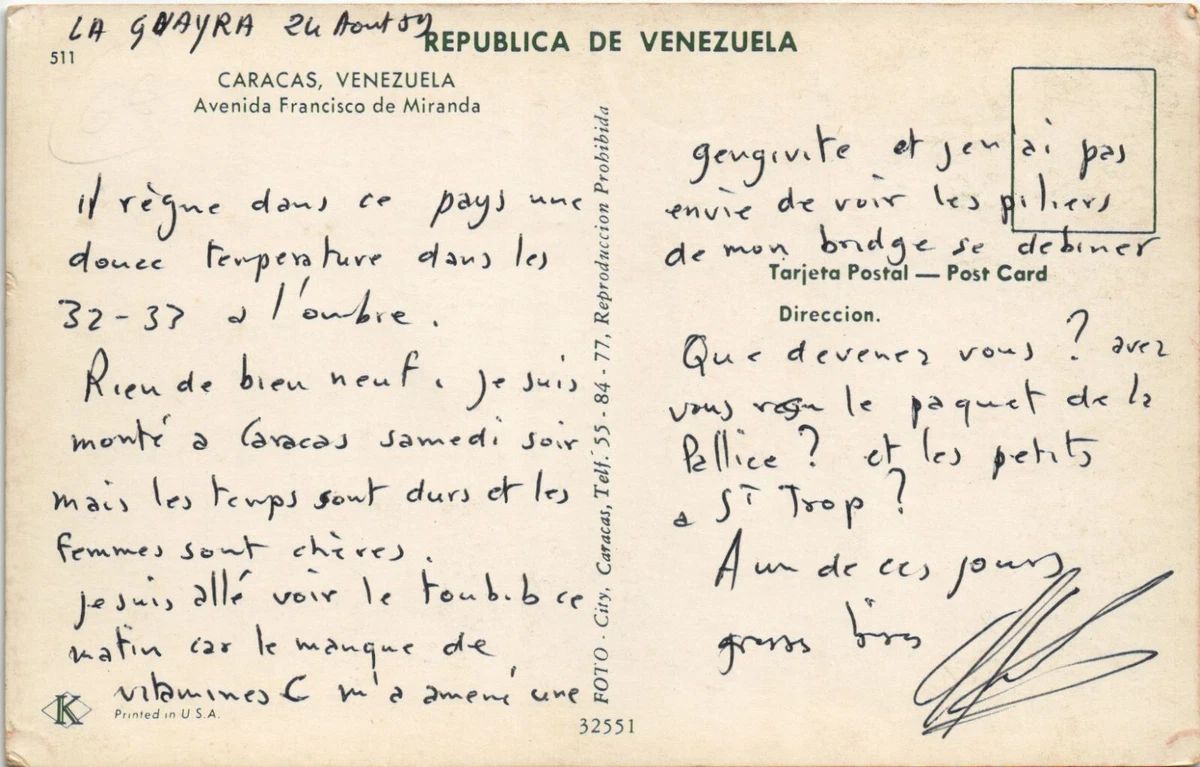 LA GUAYRA 24 Aout 59
511
REPUBLICA DE VENEZUELA
CARACAS, VENEZUELA
Avenida Francisco de Miranda
il règne dans ce pays une
douce temperature dans les
32-33 a l'ombre.
Rien de bien neuf. je suis
monté a Caracas samedi soir
mais les temps sont durs et les
femmes sont chères.
je suis allé voir le toubib ce
matin car le manque de
vitamines C m'a amené une
K
Printed in U S.A.
FOTO - City, Caracas, Telf. 55 - 84 - 77, Reproduccion Prohibida
32551
gengivite et j'en ai pas
envie de voir les piliers
de mon bridge se debiner
Tarjeta Postal — Post Card
Direccion.
Que devenez vous ? avez
vous reçu le paquet de la
Pallice ? et les petits
a St Trop ?
A un de ces jours
gross bises